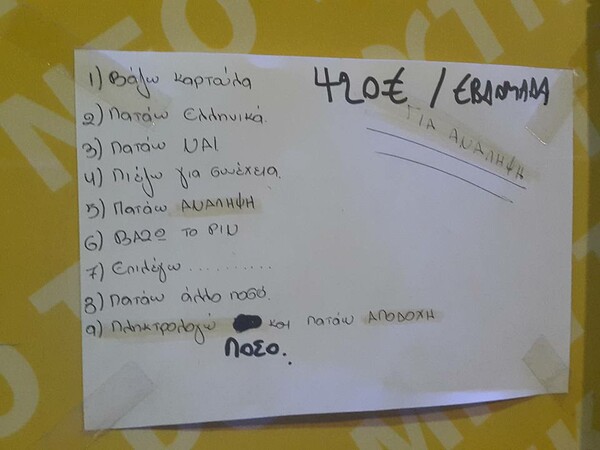 420€ / ΕΒΔΟΜΑΔΑ
ΓΙΑ ΑΝΑΛΗΨΗ
1) Βάζω καρτούλα
2) Πατάω Ελληνικά.
3) Πατάω ΝΑΙ
4) Πιέζω για συνέχεια.
5) Πατάω ΑΝΑΛΗΨΗ
6) ΒΑΖΩ το PIN
7) Επιλέγω ..........
8) Πατάω άλλο ποσό.
9) Πληκτρολογώ και πατάω ΑΠΟΔΟΧΗ
ΠΟΣΟ.